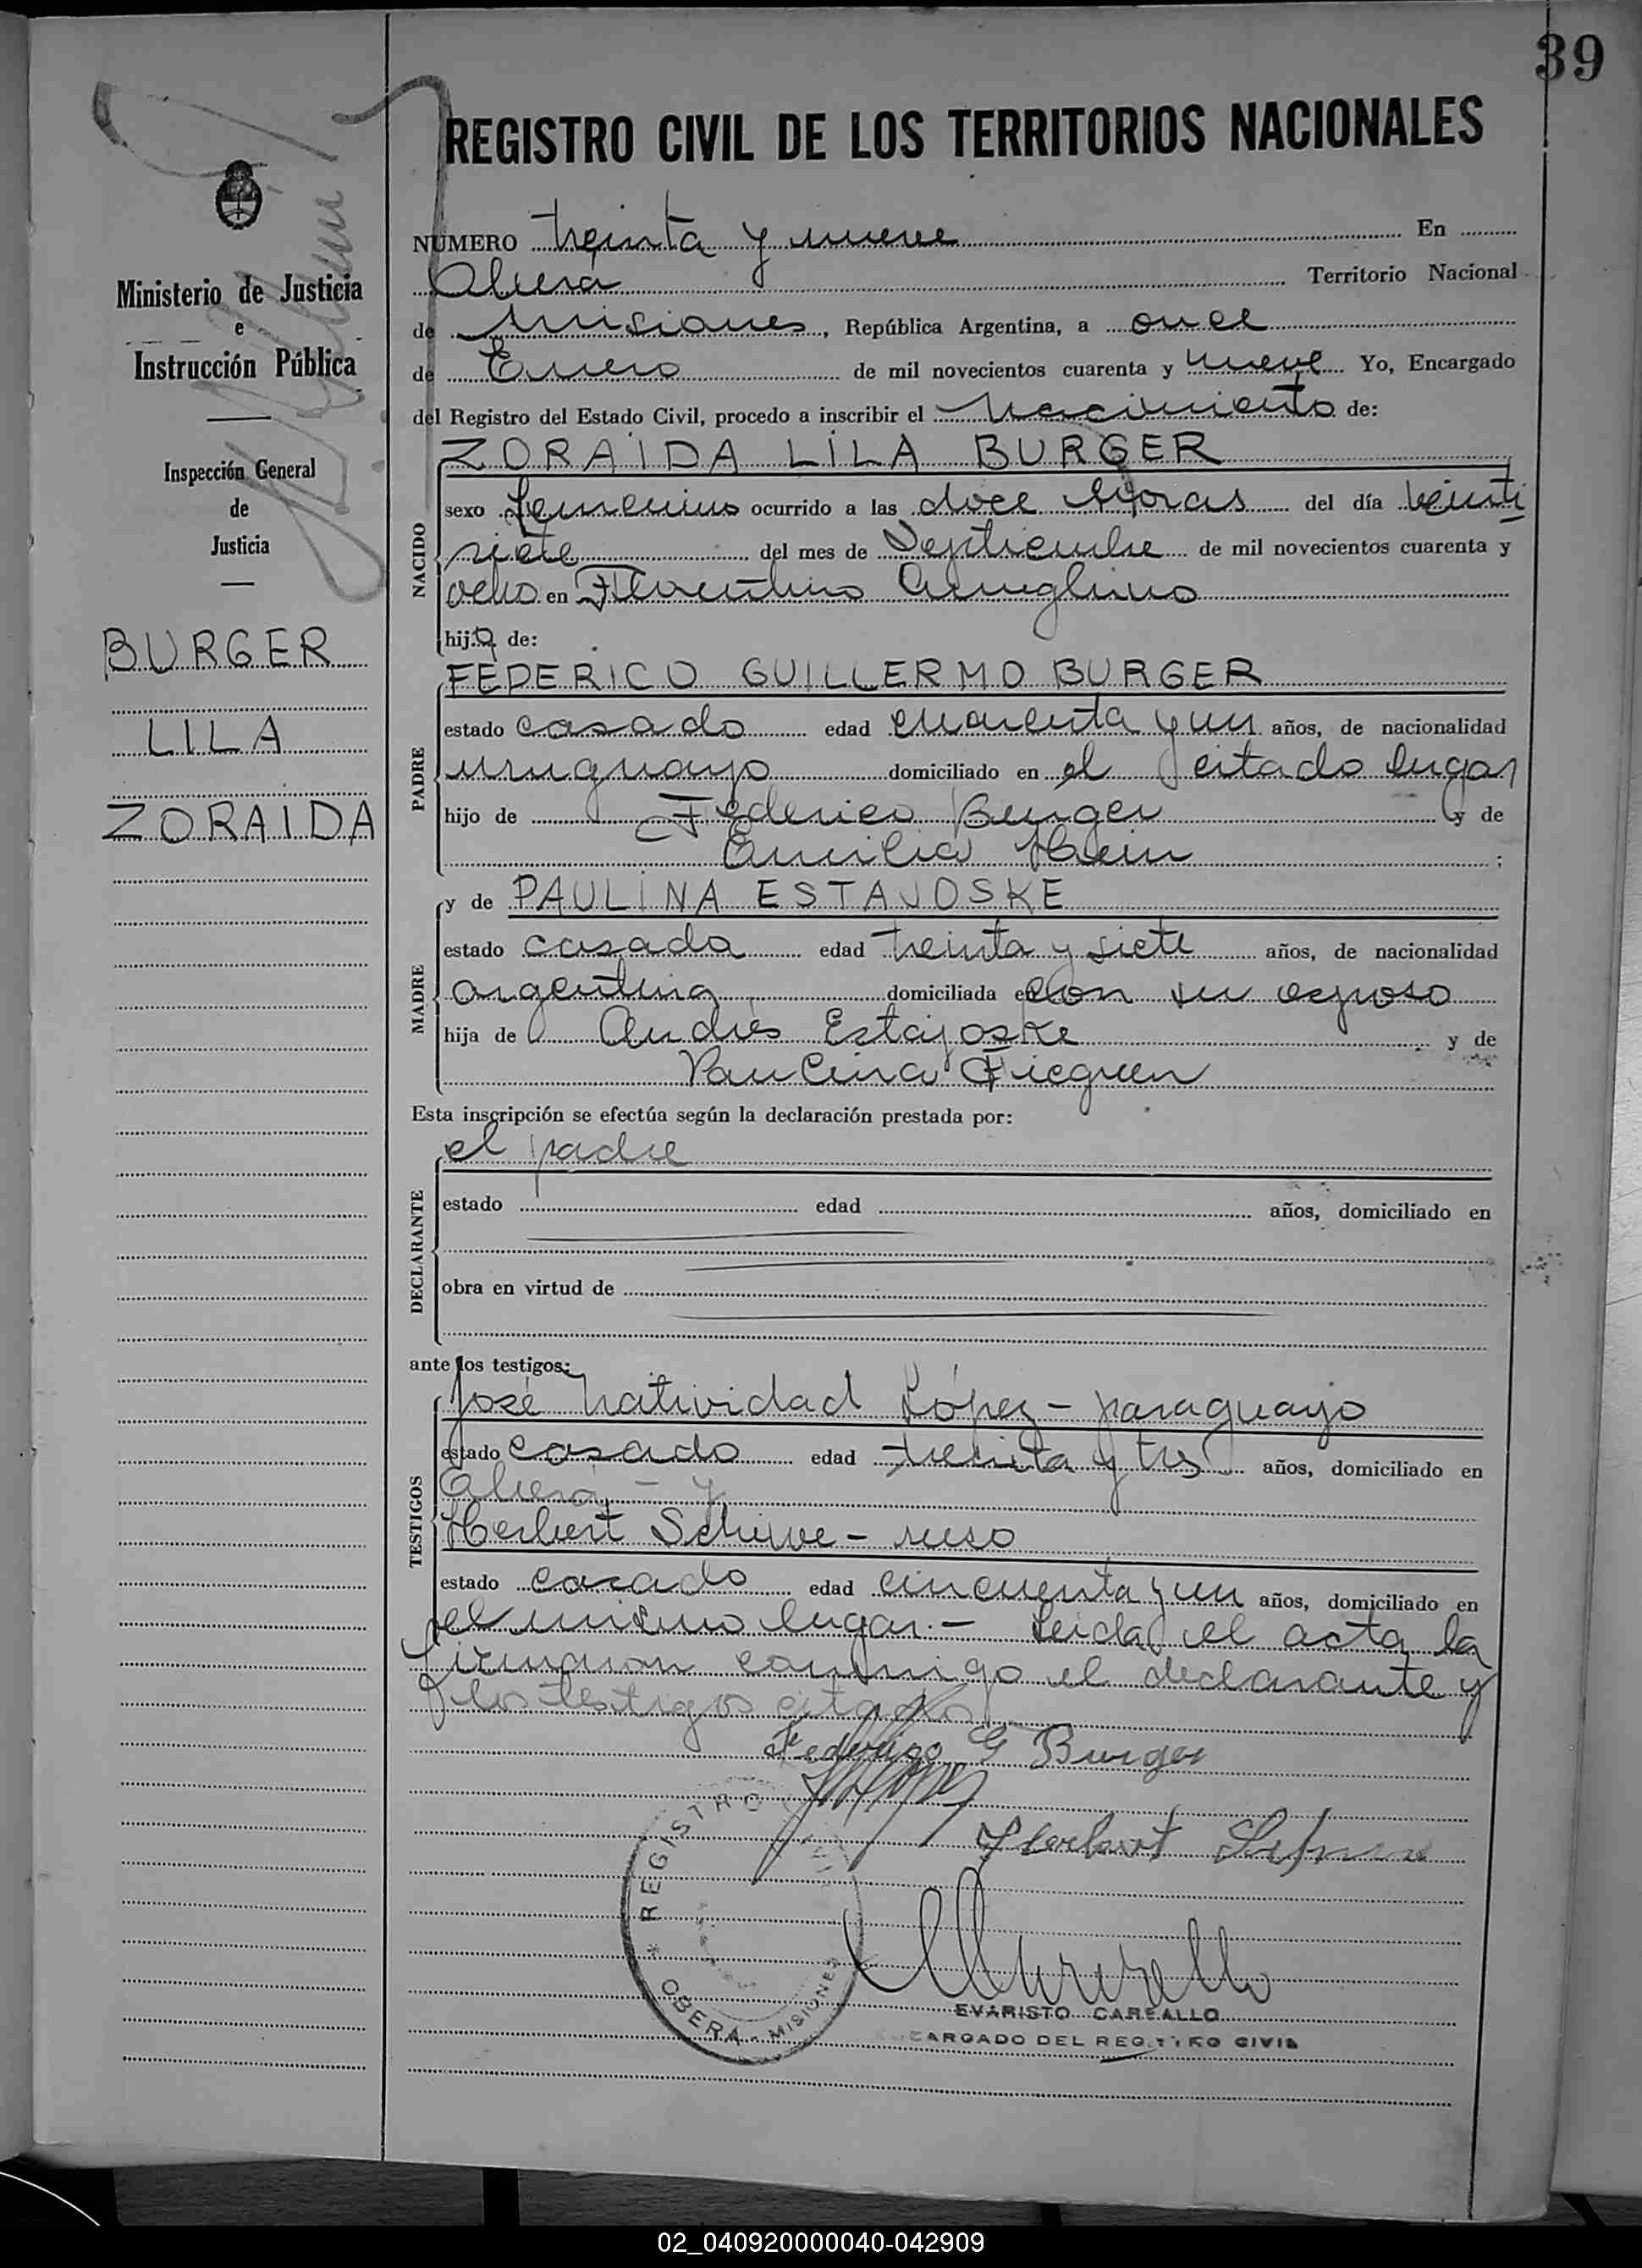 39
REGISTRO CIVIL DE LOS TERRITORIOS NACIONALES
Ministerio de Justicia
e
Instrucción Pública
Inspección General
de
Justicia
BURGER
LILA
ZORAIDA
NÚMERO treinta y nueve En
Oberá Territorio Nacional
de Misiones, República Argentina, a once
de Enero de mil novecientos cuarenta y nueve Yo, Encargado
del Registro del Estado Civil, procedo a inscribir el Nacimiento de:
ZORAIDA LILA BURGER
NACIDO
sexo femenino ocurrido a las doce horas del día veinti
siete del mes de Septiembre de mil novecientos cuarenta y
ocho en Florentino Ameghino
hija de:
FEDERICO GUILLERMO BURGER
PADRE
estado casado edad cuarenta y un años, de nacionalidad
uruguayo domiciliado en el citado lugar
hijo de Federico Burger y de
Emilia Hein ;
y de PAULINA ESTAJOSKE
MADRE
estado casada edad treinta y siete años, de nacionalidad
argentina domiciliada con su esposo
hija de Andrés Estajoske y de
Paulina Fieguen
Esta inscripción se efectúa según la declaración prestada por:
el padre
DECLARANTE
estado edad años, domiciliado en
obra en virtud de
ante los testigos:
José Natividad López - paraguayo
TESTIGOS
estado casado edad treinta y tres años, domiciliado en
Oberá - y
Herbert Schuve - ruso
estado casado edad cincuenta y un años, domiciliado en
el mismo lugar.- Leida el acta la
firmaron conmigo el declarante y
los testigos citados
Federigo G Burger
Herbert
REGISTRO CIVIL
* OBERÁ - MISIONES
EVARISTO CARBALLO
ENCARGADO DEL REGISTRO CIVIL
02_040920000040-042909